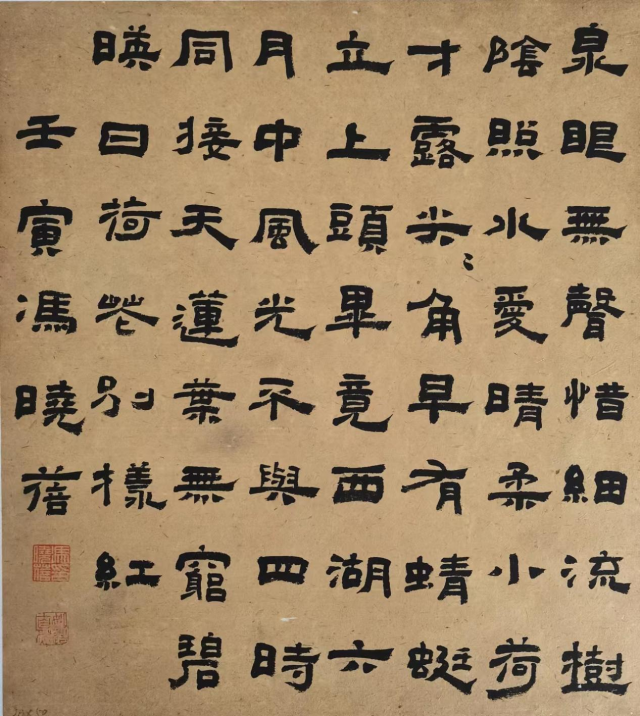 泉眼無聲惜細流樹
陰照水愛晴柔小荷
才露尖〻角早有蜻蜓
立上頭畢竟西湖六
月中風光不與四時
同接天蓮葉無窮碧
暎日荷花別樣紅
壬寅馮曉蓓